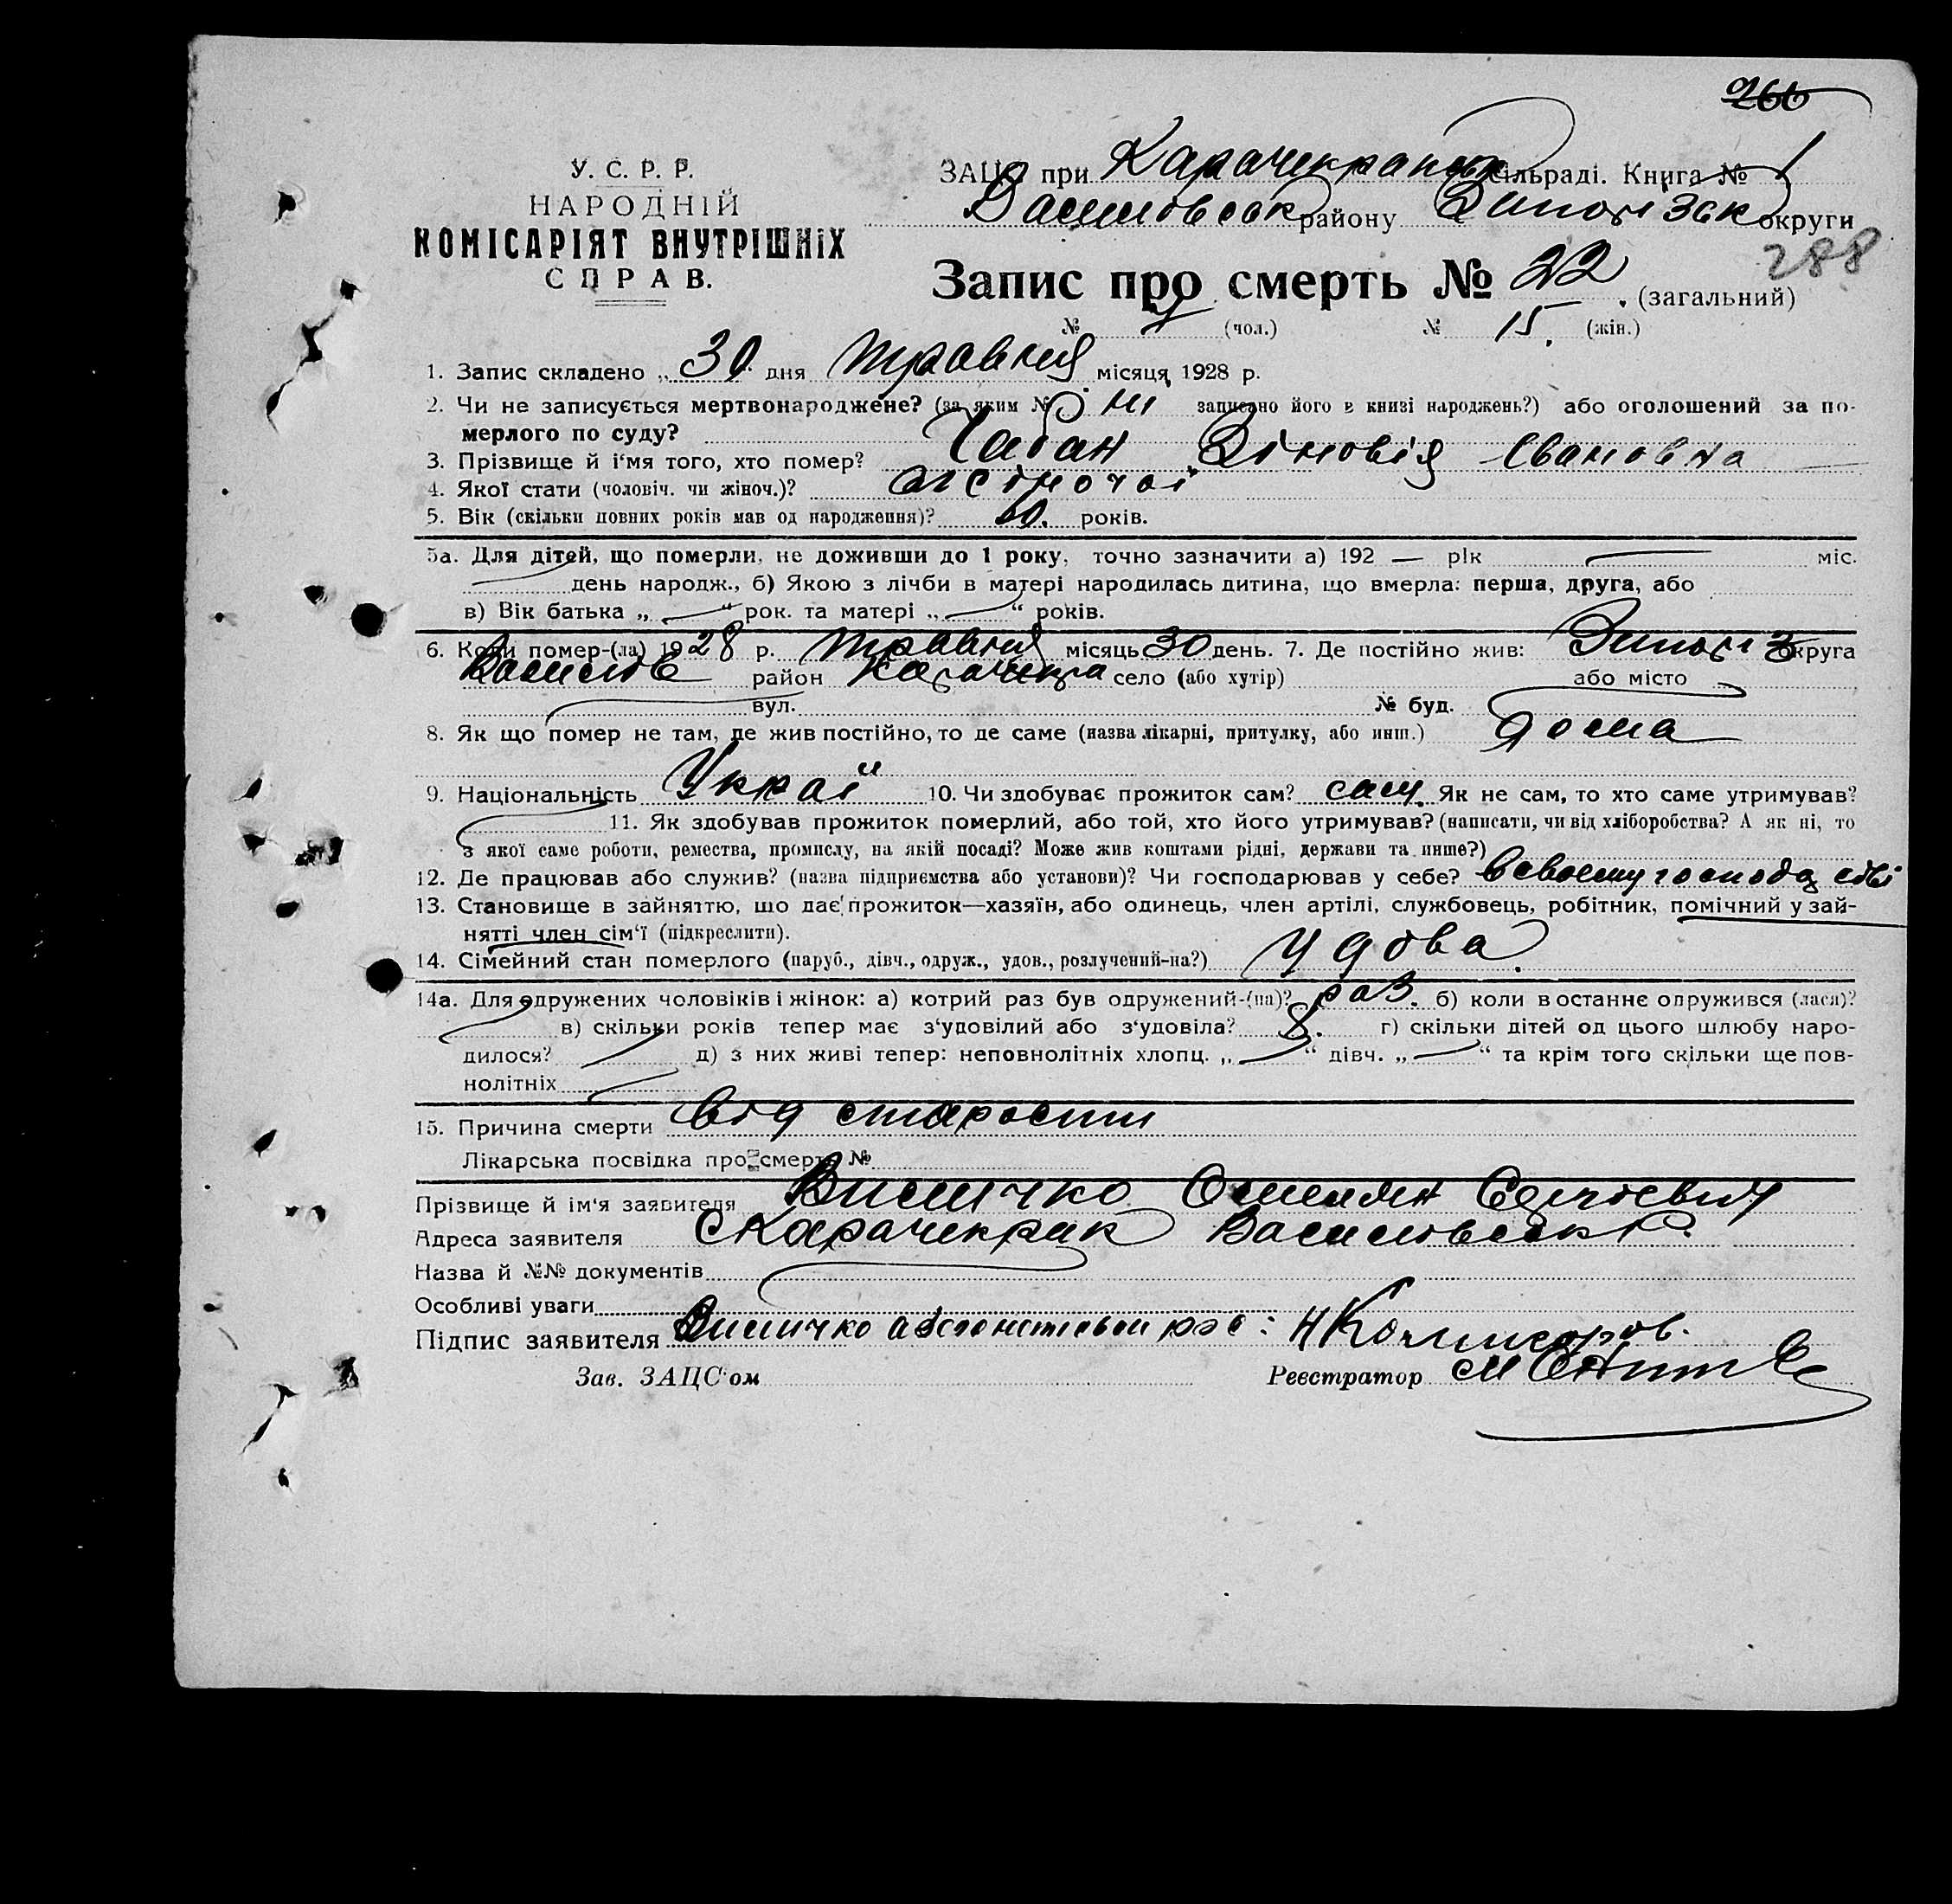 266
У. С. Р. Р.
НАРОДНІЙ
КОМІСАРІЯТ ВНУТРІШНІХ
СПРАВ.
ЗАЦС при Карачекрацьк сільраді. Книга № 1
Василівськ району Запорізьк округи
288
Запис про смерть № 22 (загальний)
№ (чол.) № 15. (жін.)
1. Запис складено „ 30 дня травня місяця 1928 р.
2. Чи не записується мертвонароджене? (за яким № ні записано його в книзі народжень?) або оголошений за по-
мерлого по суду?
3. Прізвище й і'мя того, хто помер? Чабан Зіновія Івановна
4. Якої стати (чоловіч. чи жіноч.)? жіночої
5. Вік (скільки повних років мав од народження)? років.
5а. Для дітей, що померли, не доживши до 1 року, точно зазначити а) 192 — рік міс.
день народж., б) Якою з лічби в матері народилась дитина, що вмерла: перша, друга, або
в) Вік батька „ — “ рок. та матері „ — “ років.
6. Коли помер-(ла) 1928 р. травня місяць 30 день. 7. Де постійно жив: Запоріз округа
Василів район Карачекра село (або хутір) або місто
вул. № буд.
8. Як що помер не там, де жив постійно, то де саме (назва лікарні, притулку, або инш.) дома
9. Національність Украї 10. Чи здобуває прожиток сам? сам. Як не сам, то хто саме утримував?
11. Як здобував прожиток померлий, або той, хто його утримував? (написати, чи від хліборобства? А як ні, то
з якої саме роботи, ремества, промислу, на якій посаді? Може жив коштами рідні, держави та инше?)
12. Де працював або служив? (назва підприємства або установи)? Чи господарював у себе? в своему господарстві
13. Становище в зайняттю, що дає прожиток—хазяїн, або одинець, член артілі, службовець, робітник, помічний у зай-
нятті член сім'ї (підкреслити).
14. Сімейний стан померлого (паруб., дівч., одруж., удов., розлучений-на?) Удова.
14а. Для одружених чоловіків і жінок: а) котрий раз був одружений-(на)? раз. б) коли в останнє одружився (лася)?
в) скільки років тепер має з'удовілий або з'удовіла? 8. г) скільки дітей од цього шлюбу наро-
дилося? д) з них живі тепер: неповнолітніх хлопц. „ — “ дівч. „ — “ та крім того скільки ще пов-
нолітніх
15. Причина смерти від старости
Лікарська посвідка про смерть №
Прізвище й ім'я заявителя Омелян
Адреса заявителя С Карачекрак Василівськ Р.
Назва й №№ документів
Особливі уваги
Підпис заявителя
Зав. ЗАЦС'ом Реєстратор